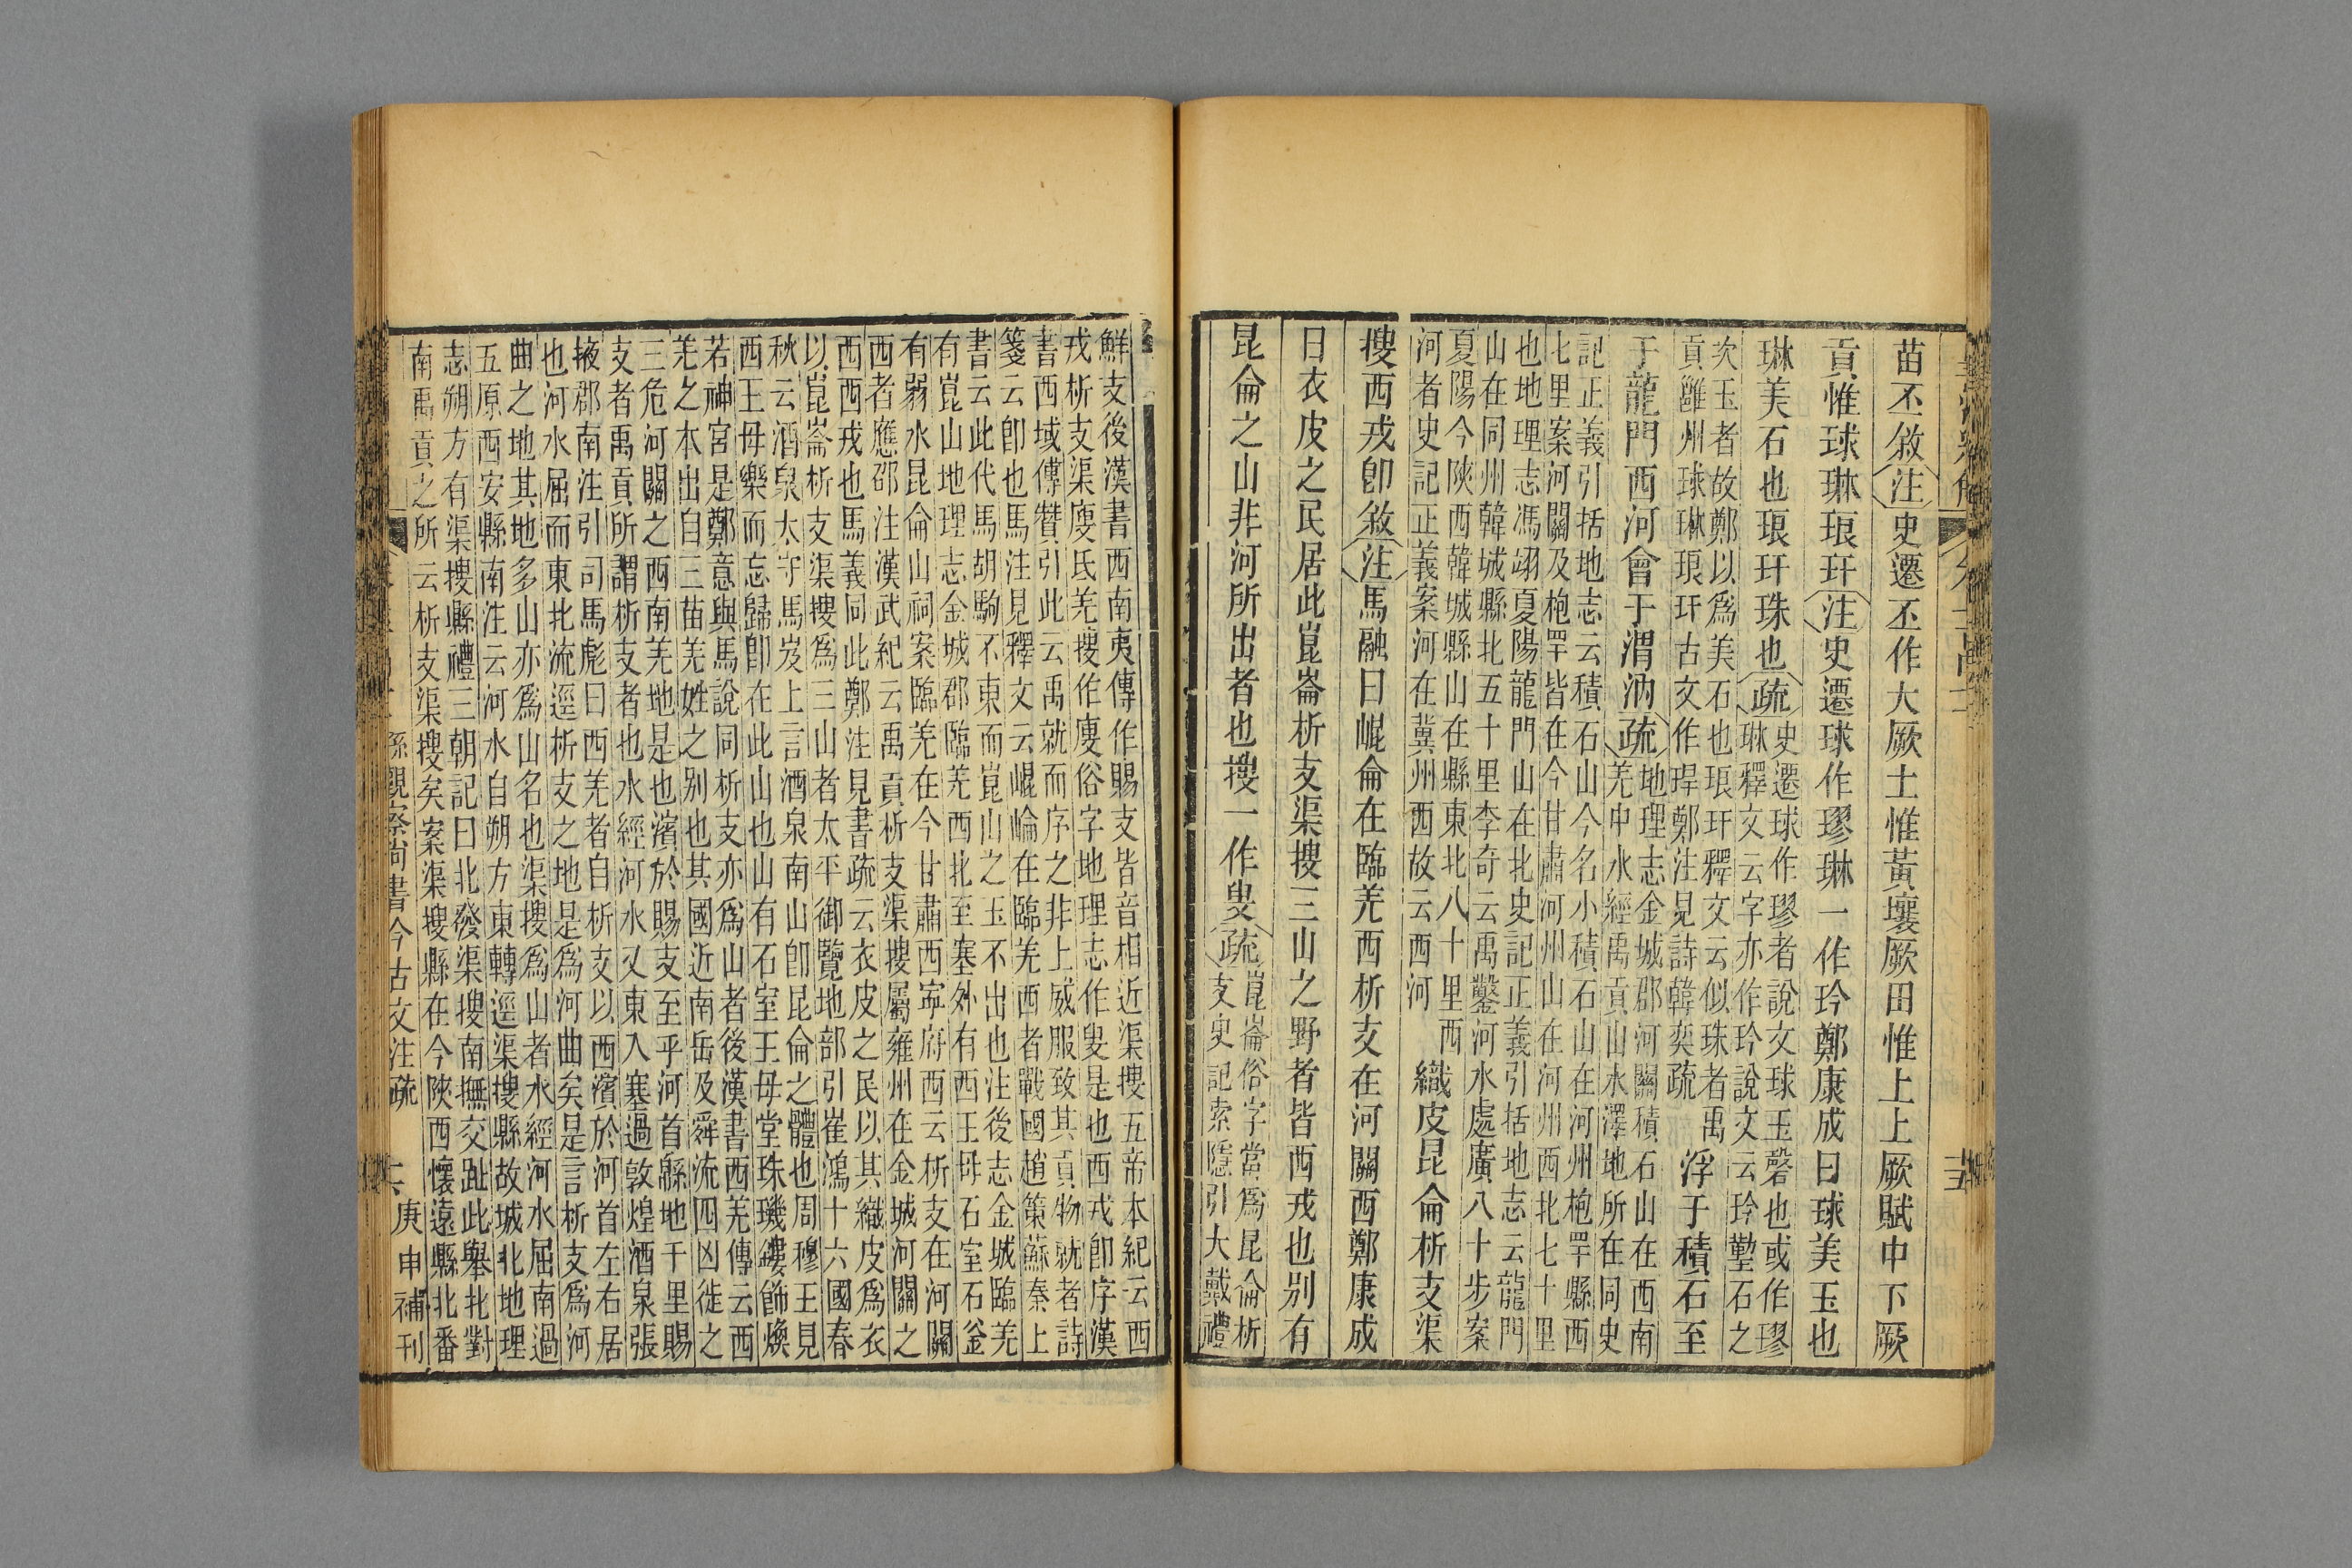 苗丕敘注史遷丕作大厥土惟黃壤厥田惟上上厥賦中下厥
貢惟球琳琅玕注史遷球作璆琳一作玲鄭康成曰球美玉也
琳美石也琅玕珠也疏史遷球作璆者說文球玉磬也或作璆
琳釋文云字亦作玲說文云玲塾石之
次玉者故鄭以爲美石也琅玕釋文云似珠者禹
貢雝州球琳琅玕古文作琾鄭注見詩韓奕疏
浮于積石至
于龍門西河會于渭汭疏地理志金城郡河關積石山在西南
羌中水經禹貢山水澤地所在同史
記正義引括地志云積石山今名小積石山在河州枹罕縣西
七里案河關及枹罕皆在今甘肅河州山在河州西北七十里
也地理志馮翊夏陽龍門山在北史記正義引括地志云龍門
山在同州韓城縣北五十里李奇云禹鑿河水處廣八十步案
夏陽今陝西韓城縣山在縣東北八十里西
河者史記正義案河在冀州西故云西河
織皮昆侖析支渠
搜西戎卽敘注馬融曰崐侖在臨羌西析支在河關西鄭康成
曰衣皮之民居此崑崙析支渠搜三山之野者皆西戎也別有
昆侖之山非河所出者也搜一作叟疏崑崙俗字當爲昆侖析
支史記索隱引大戴禮
鮮支後漢書西南夷傳作賜支皆音相近渠搜五帝本紀云西
戎析支渠廋氐羌搜作廋俗字地理志作叟是也西戎卽序漢
書西域傳贊引此云禹就而序之非上威服致其貢物就者詩
箋云卽也馬注見釋文云崐崘在臨羌西者戰國趙策蘇秦上
書云此代馬胡駒不東而崑山之玉不出也注後志金城臨羌
有崑山地理志金城郡臨羌西北至塞外有西王母石室石釜
有弱水昆侖山祠案臨羌在今甘肅西寧府西云析支在河關
西者應邵注漢武紀云禹貢析支渠搜屬雍州在金城河關之
西西戎也馬義同此鄭注見書疏云衣皮之民以其織皮爲衣
以崑崙析支渠搜爲三山者太平御覽地部引崔鴻十六國春
秋云酒泉太守馬岌上言酒泉南山卽昆侖之體也周穆王見
西王母樂而忘歸卽在此山也山有石室王母堂珠璣鏤飾煥
若神宮是鄭意與馬說同析支亦爲山者後漢書西羌傳云西
羌之本出自三苗羌姓之別也其國近南岳及舜流四凶徙之
三危河關之西南羌地是也濱於賜支至乎河首緜地千里賜
支者禹貢所謂析支者也水經河水又東入塞過敦煌酒泉張
掖郡南注引司馬彪曰西羌者自析支以西濱於河首左右居
也河水屈而東北流逕析支之地是爲河曲矣是言析支爲河
曲之地其地多山亦爲山名也渠搜爲山者水經河水屈南過
五原西安縣南注云河水自朔方東轉逕渠搜縣故城北地理
志朔方有渠搜縣禮三朝記曰北發渠搜南撫交趾此舉北對
南禹貢之所云析支渠搜矣案渠搜縣在今陝西懷遠縣北番
孫觀察尚書今古文注疏 庚申補刊